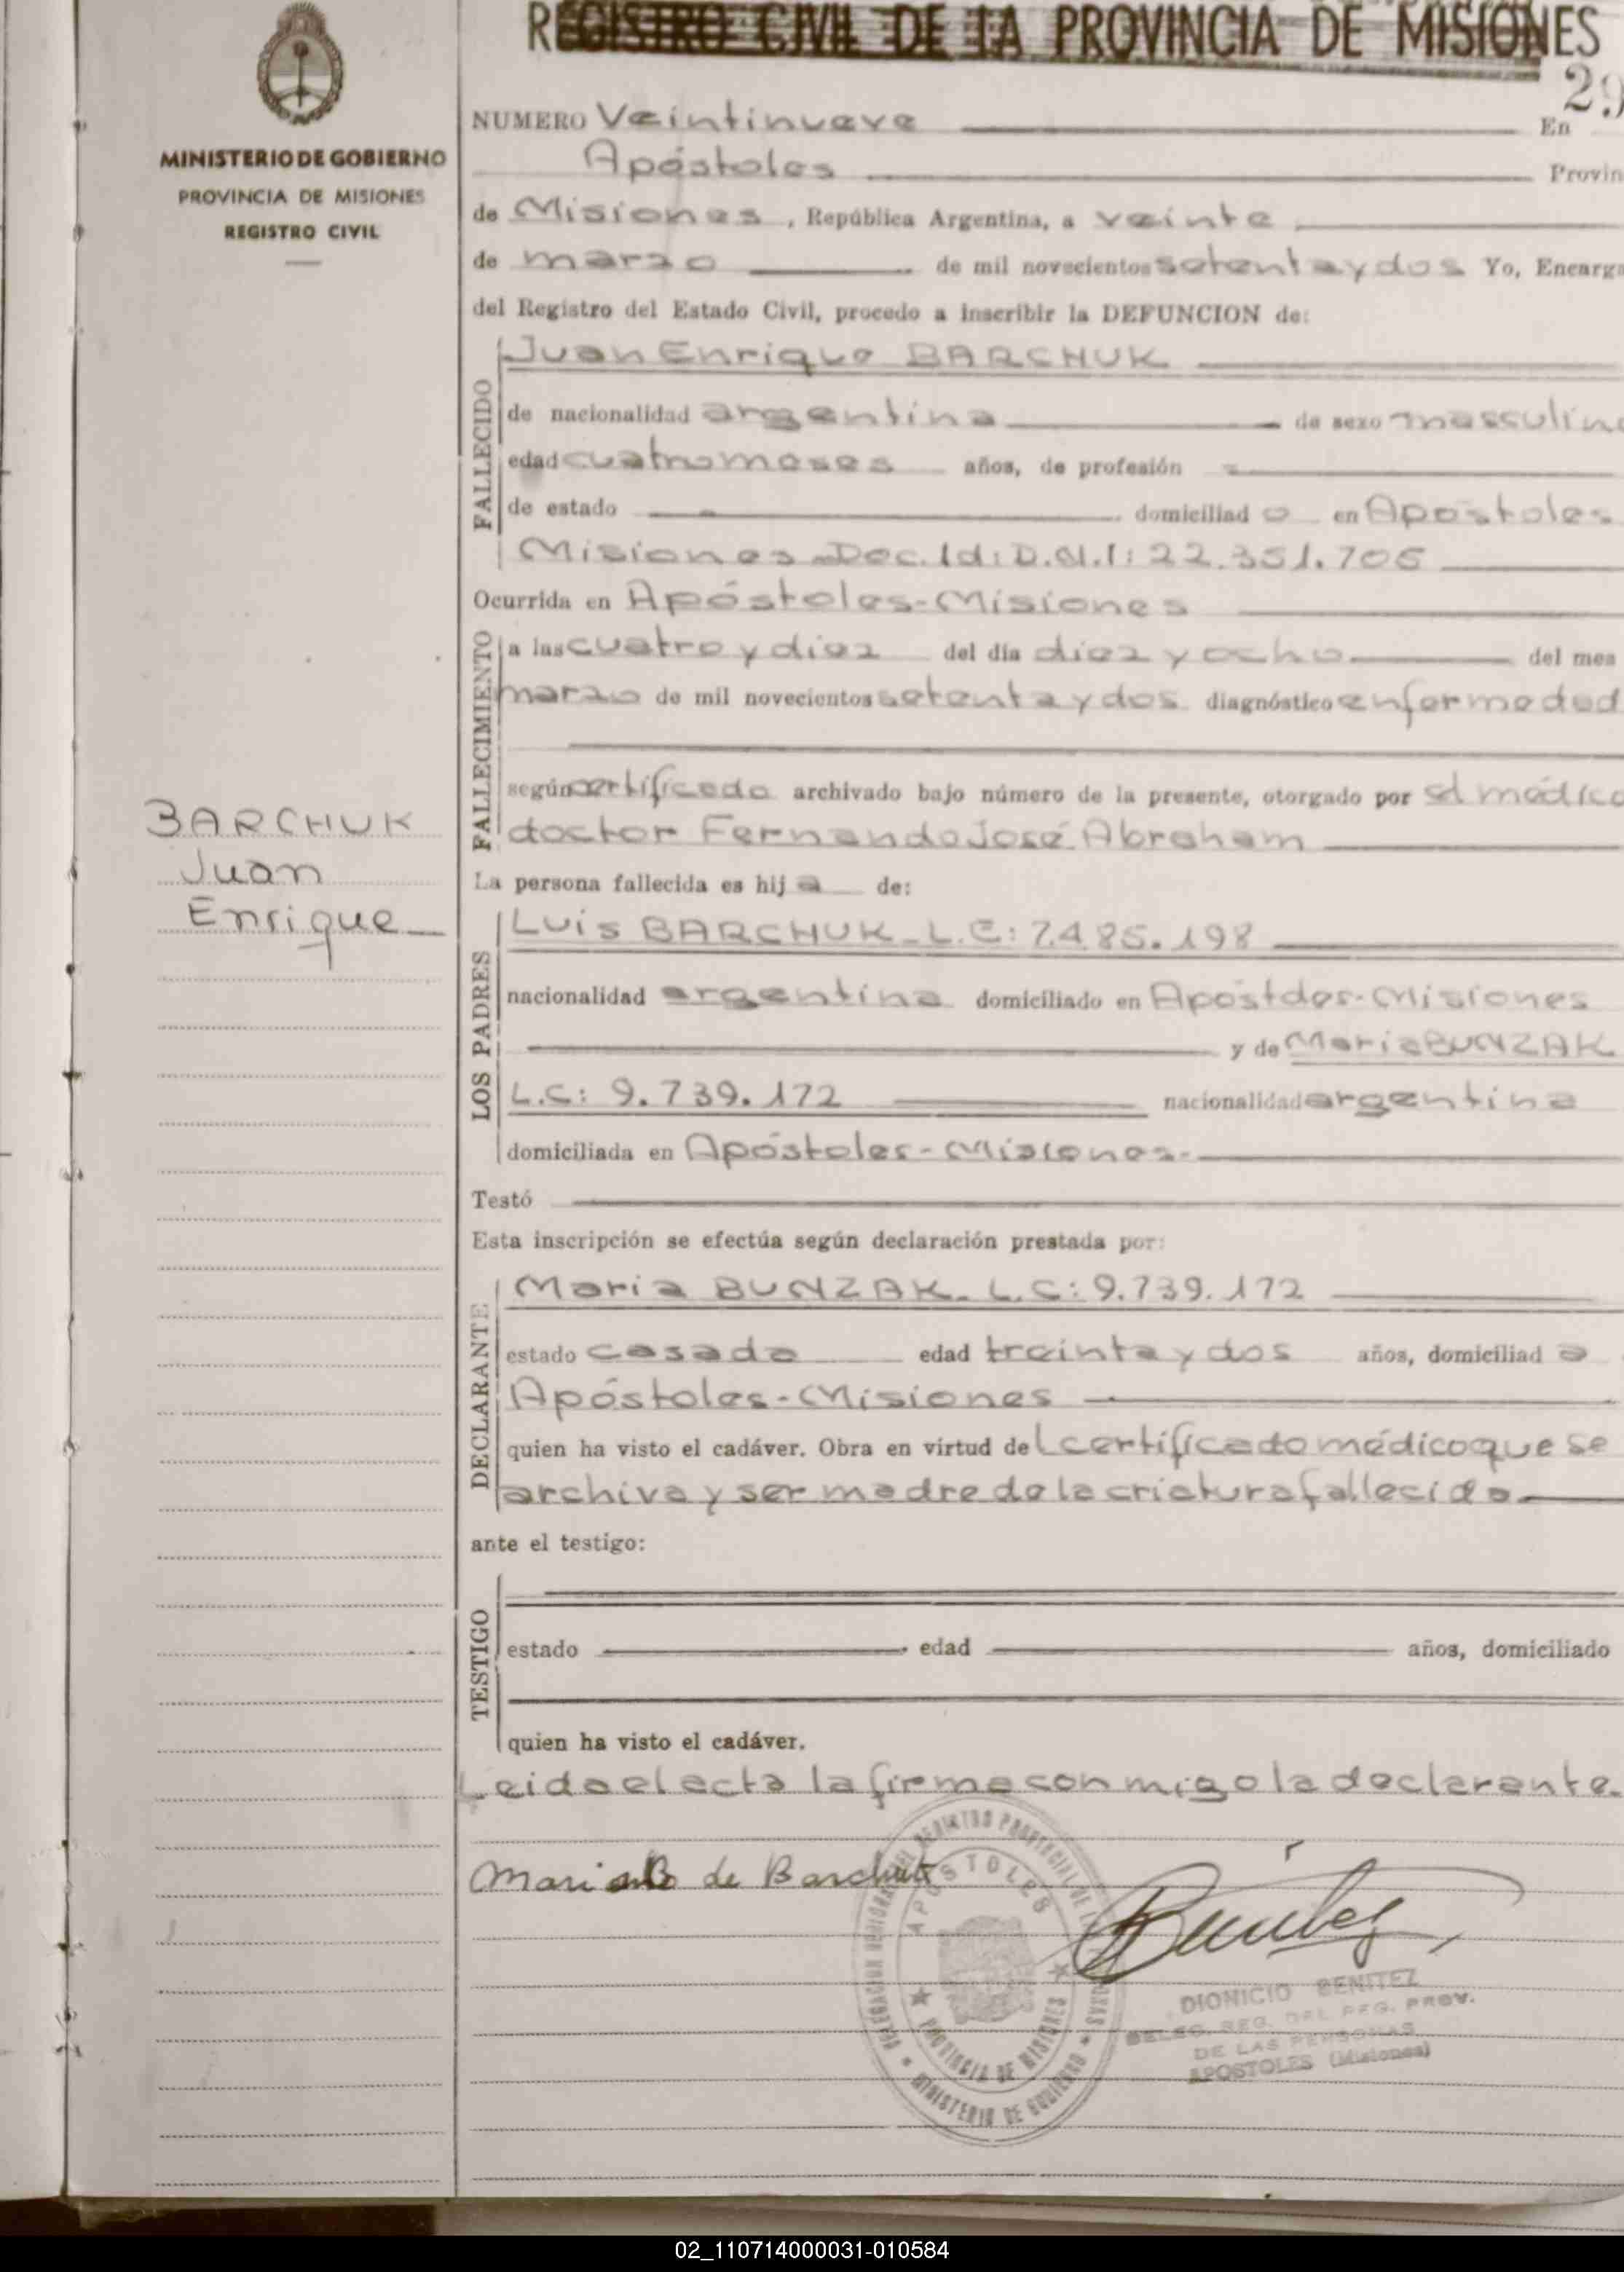 REGISTRO CIVIL DE LA PROVINCIA DE MISIONES
29
MINISTERIO DE GOBIERNO
PROVINCIA DE MISIONES
REGISTRO CIVIL
NUMERO Veintinueve En
Apóstoles Provin
de Misiones, República Argentina, a veinte
de marzo de mil novecientos setenta y dos Yo, Encarga
del Registro del Estado Civil, procedo a inscribir la DEFUNCION de:
FALLECIDO
Juan Enrique BARCHUK
de nacionalidad argentina de sexo masculino
edad cuatro meses años, de profesión
de estado domiciliad o en Apostoles
Misiones Doc. Id: D.N.I: 22.351.706
Ocurrida en Apóstoles-Misiones
FALLECIMIENTO
a las cuatro y diez del día diez y ocho del mes
marzo de mil novecientos setenta y dos diagnóstico enfermedad
según certificado archivado bajo número de la presente, otorgado por el médico
doctor Fernando José Abraham
BARCHUK
Juan
Enrique
La persona fallecida es hij a de:
LOS PADRES
Luis BARCHUK L.E: 7.485.198
nacionalidad argentina domiciliado en Apóstoles-Misiones
y de Maria BUNZAK
L.C: 9.739.172 nacionalidad argentina
domiciliada en Apóstoles-Misiones-
Testó
Esta inscripción se efectúa según declaración prestada por:
DECLARANTE
Maria BUNZAK. L.C: 9.739.172
estado casada edad treinta y dos años, domiciliad a
Apóstoles-Misiones
quien ha visto el cadáver. Obra en virtud de l certificado médico que se
archiva y ser madre de la criatura fallecida.
ante el testigo:
TESTIGO
estado edad años, domiciliado
quien ha visto el cadáver.
Leida el acta la firma conmigo la declarante.
Maria B de Barchuk
APOSTOLES
PROVINCIA DE MISIONES
MINISTERIO DE GOBIERNO
DIONICIO BENITEZ
DELEG. REG. DEL REG. PROV.
DE LAS PERSONAS
APOSTOLES (Misiones)
02_110714000031-010584